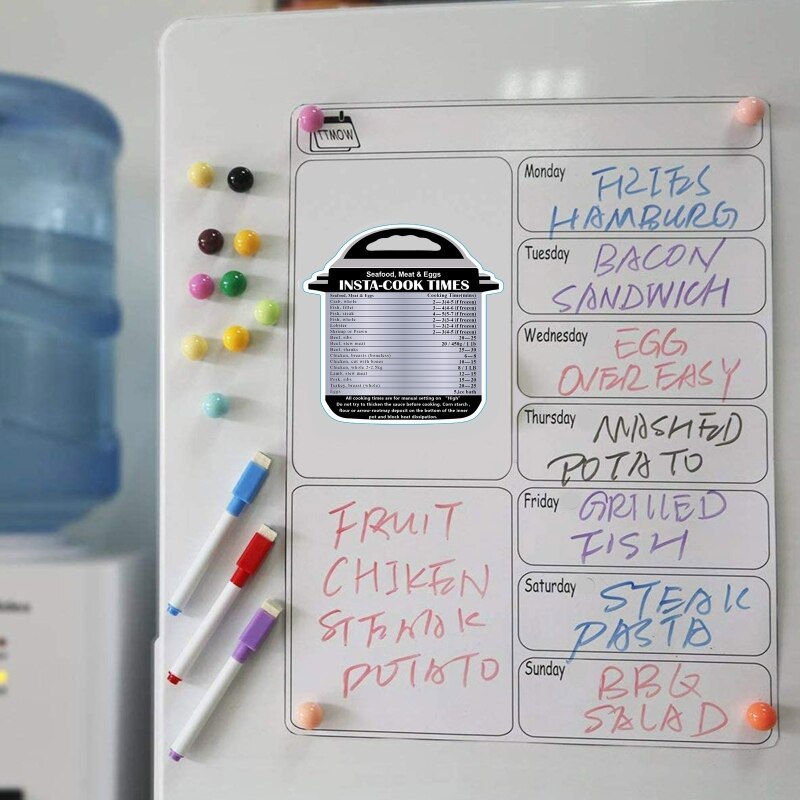 TTMOW
Monday
FRIES
HAMBURG
Tuesday
BACON
SANDWICH
Wednesday
EGG
OVER EASY
Thursday
MASHED
POTATO
Friday
GRILLED
FISH
Saturday
STEAK
PASTA
Sunday
BBQ
SALAD
Seafood, Meat & Eggs
INSTA-COOK TIMES
Seafood, Meat & Eggs Cooking Time(mins)
Crab, whole 2—3(4-5 if frozen)
Fish, fillet
Fish, steak
Fish, whole
Lobster
Shrimp or Prawn
Beef, ribs 20—25
Beef, stew meat 20 / 450g / 1 LB
Beef, shanks 25—30
Chicken, breasts (boneless) 6—8
Chicken, cut with bones 10—15
Chicken, whole 2-2.5kg 8 / 1 LB
Lamb, stew meat 12—15
Pork, ribs 15—20
Turkey, breast (whole) 20—25
Eggs
All cooking times are for manual setting on "High"
Do not try to thicken the sauce before cooking. Corn starch ,
flour or arrow-rootmay deposit on the bottom of the inner
pot and block heat dissipation.
FRUIT
CHIKEN
STEAK
POTATO